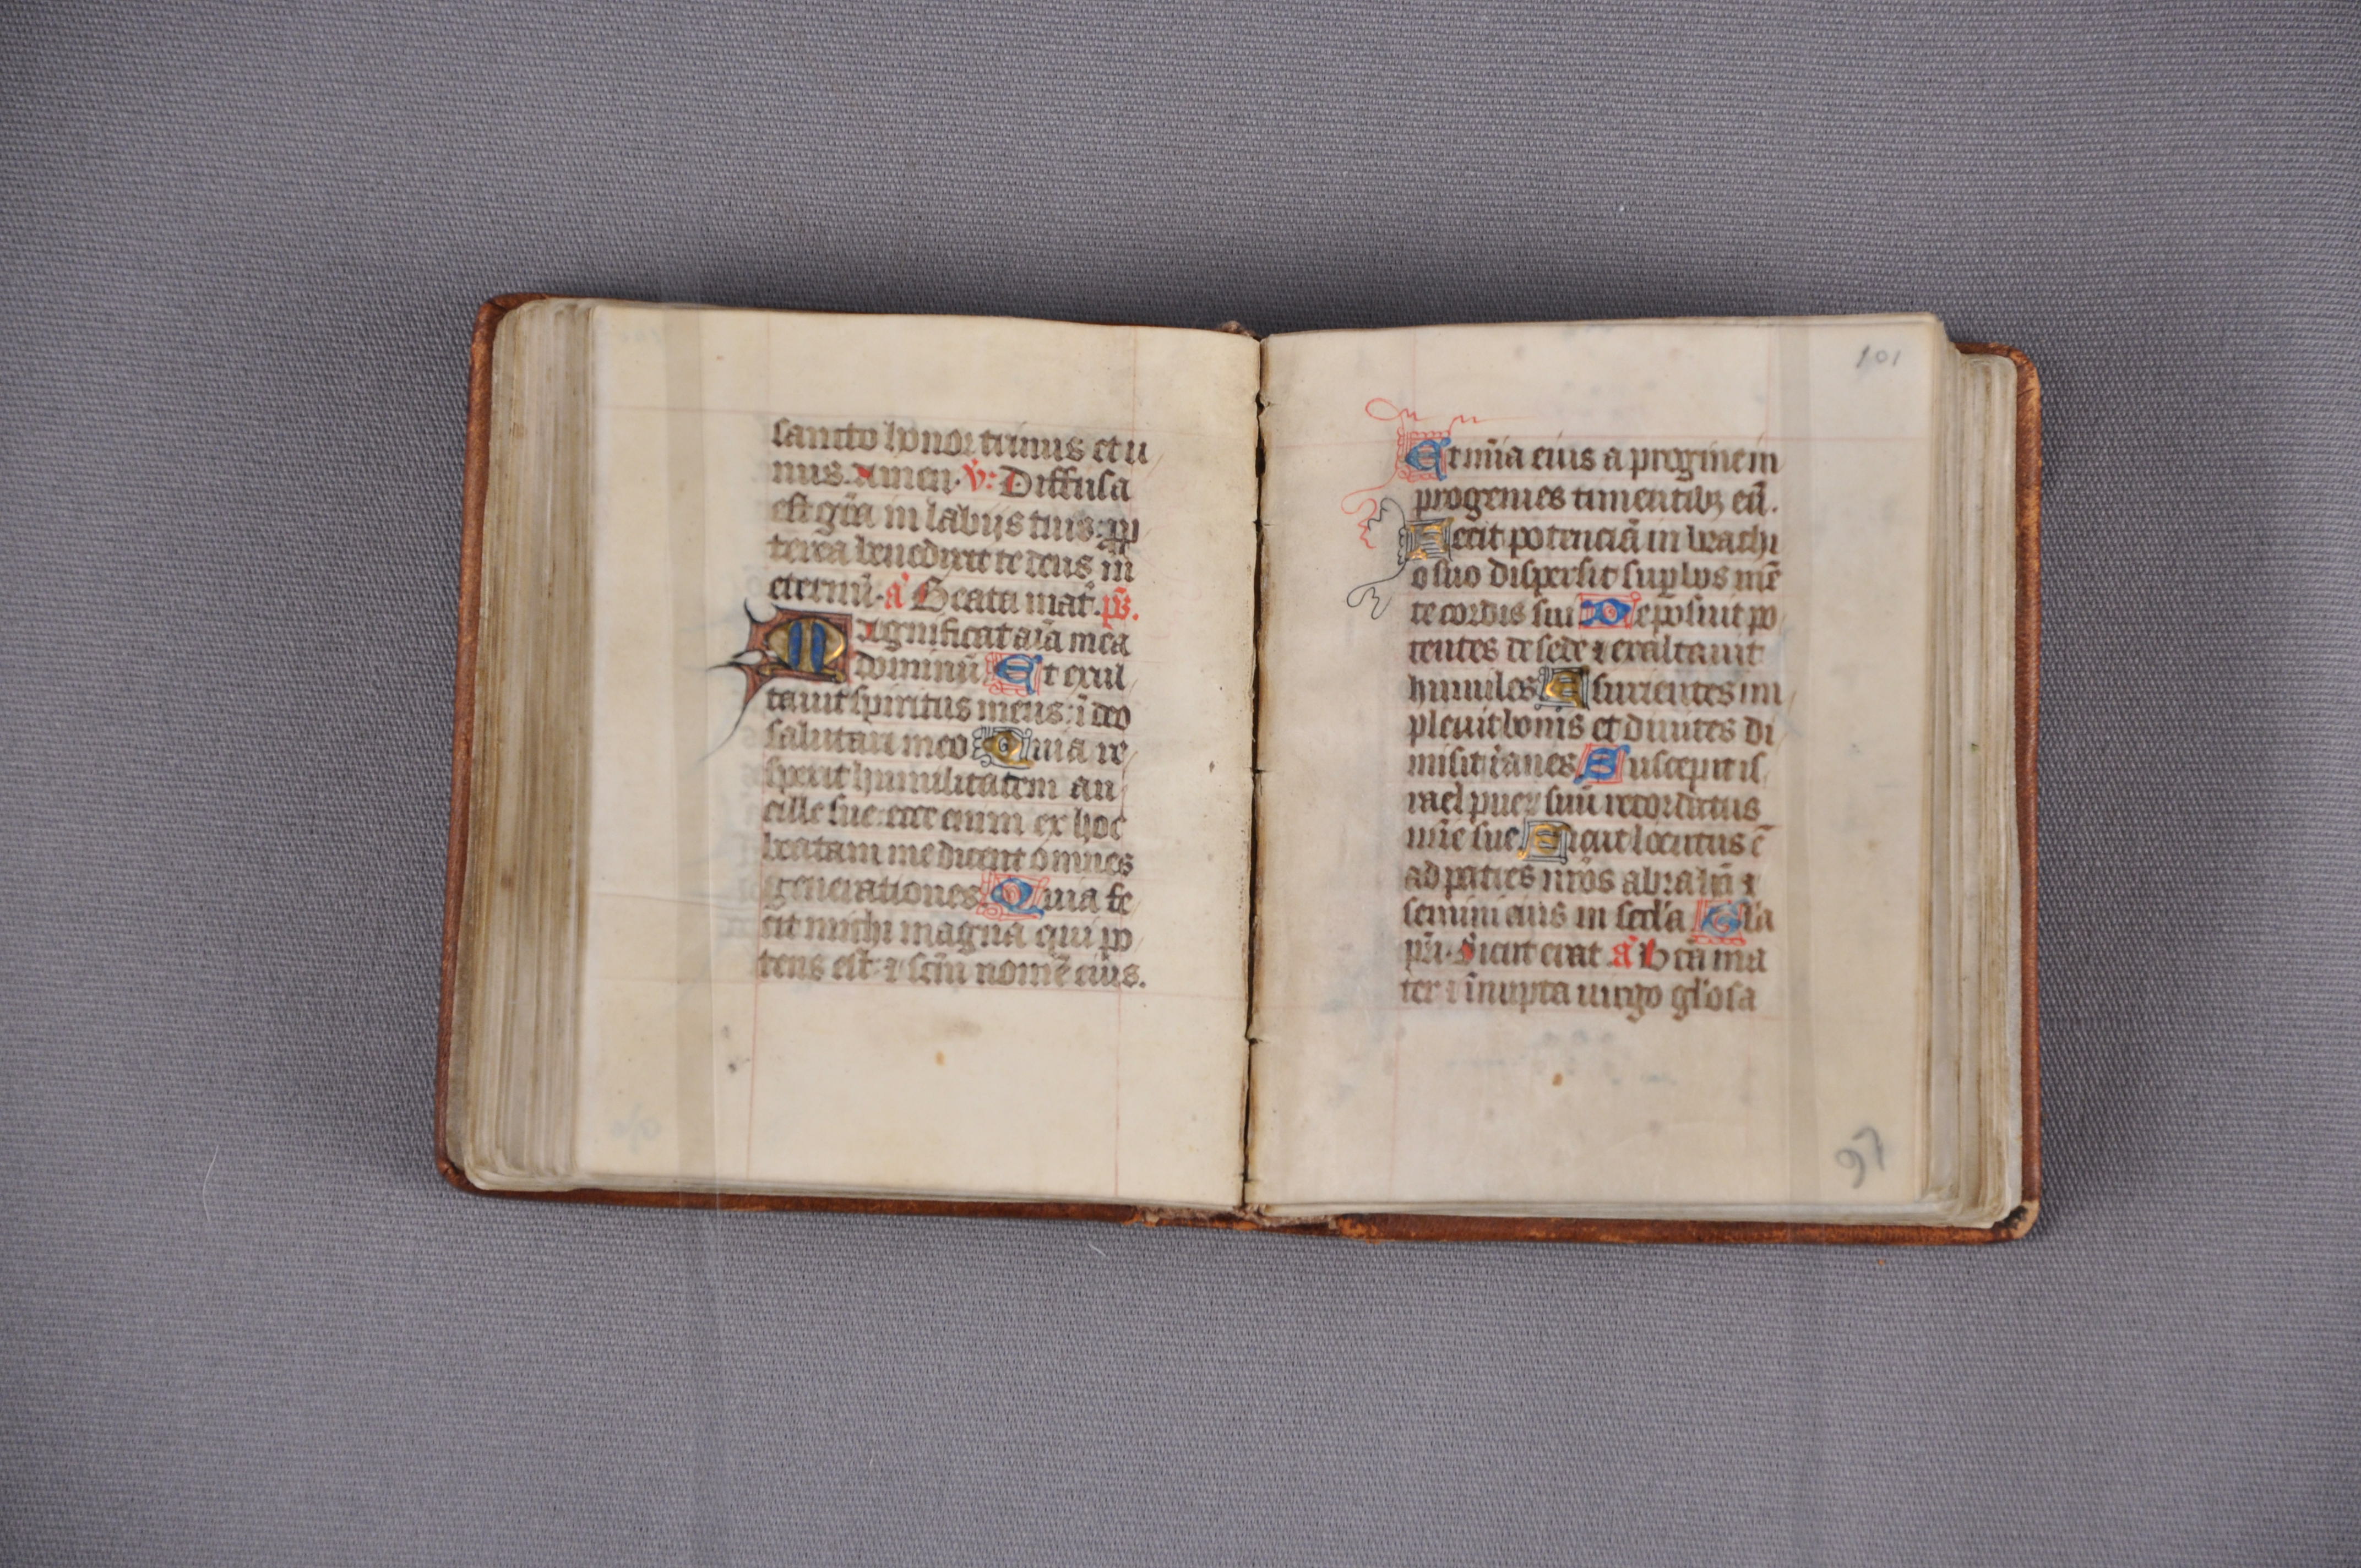 sancto honor trinus et u
nus. Amen. v̄: Diffusa
est gr̄a in labijs tuis: ꝓp
terea benedixit te deus in
eternū. a᷎ Beata mat᷎. p̄s.
Magnificat aīa mea
dominū Et exul
tauit spiritus meus: ī deo
salutari meo Quia re
spexit humilitatem an
cille sue: ecce enim ex hoc
beatam me dicent omnes
generationes Quia fe
cit michi magna qui po
tens est: ⁊ scm̄ nomē eius.
101
Et mīa eius a progenie in
progenies timentibꝫ eū.
Fecit potenciā in brachi
o suo dispersit suꝑbos mē
te cordis sui Deposuit po
tentes de sede ⁊ exaltauit
humiles Esurientes im
pleuit bonis et diuites di
misit īanes Suscepit is
rael pueꝝ suū recordatus
mīe sue Sicut locutus ē
ad patres nr̄os abrahā ⁊
semini eius in secl̄a Gl̄a
pr̄i. Sicut erat a᷎ Btā ma
ter ⁊ īnupta uirgo gl̄osa
97